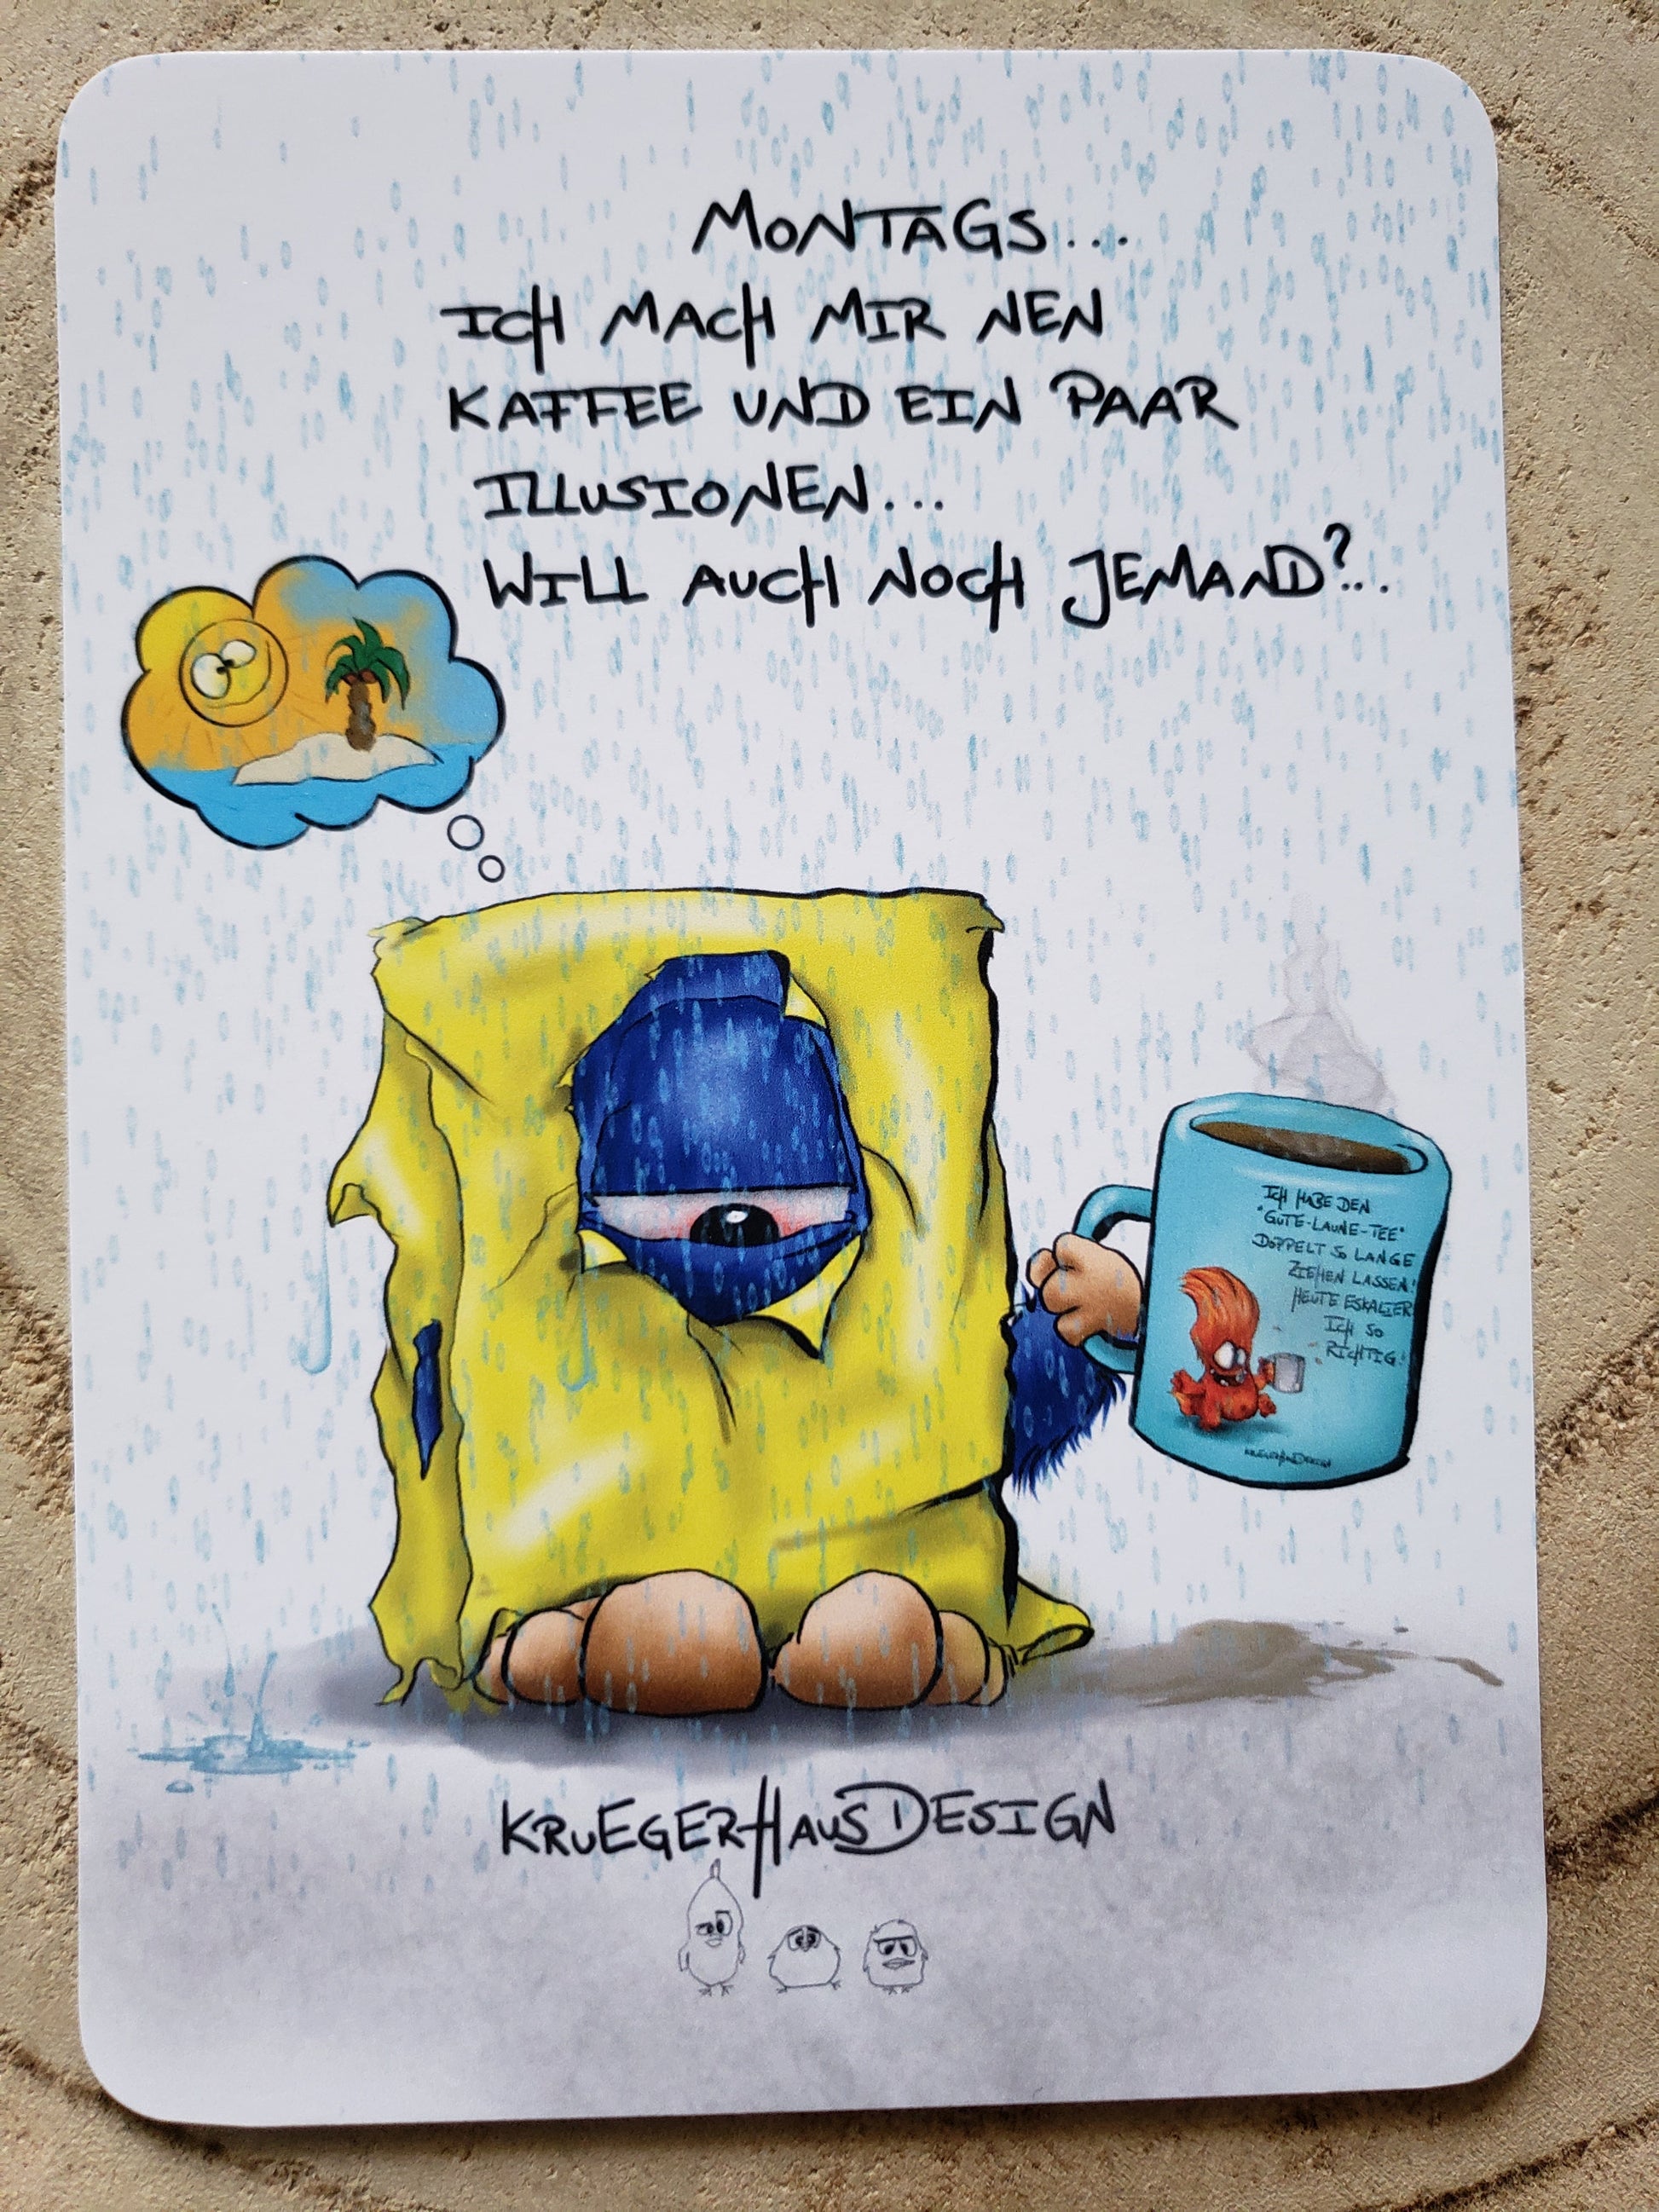 MONTAGS...
ICH MACH MIR NEN
KAFFEE UND EIN PAAR
ILLUSIONEN...
WILL AUCH NOCH JEMAND?..
ICH HABE DEN
"GUTE-LAUNE-TEE"
DOPPELT SO LANGE
ZIEHEN LASSEN!
HEUTE ESKALIER
ICH SO
RICHTIG!
KRUEGERHAUSDESIGN
KRUEGERHAUSDESIGN